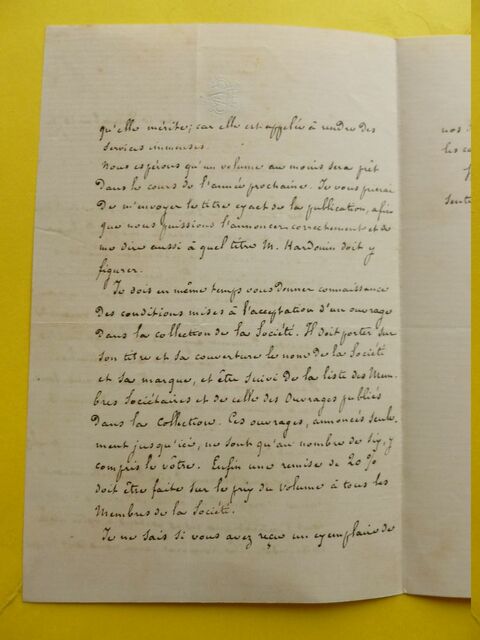 qu'elle mérite; car elle est appelée à rendre des
services immenses.
Nous espérons qu'un volume au moins sera prêt
dans le cours de l'année prochaine. Je vous prierai
de m'envoyer le titre exact de la publication, afin
que nous puissions l'annoncer correctement et de
me dire aussi à quel titre M. Hardouin doit y
figurer.
Je dois en même temps vous donner connaissance
des conditions mises à l'acceptation d'un ouvrage
dans la collection de la Société. Il doit porter sur
son titre et sa couverture le nom de la Société
et sa marque, et être suivi de la liste des Mem-
bres Sociétaires et de celle des Ouvrages publiés
dans la Collection. Ces ouvrages, annoncés seule-
ment jusqu'ici, ne sont qu'au nombre de six, y
compris le vôtre. Enfin une remise de 20 %
doit être faite sur le prix du volume à tous les
Membres de la Société.
Je ne sais si vous avez reçu un exemplaire de
nos
les